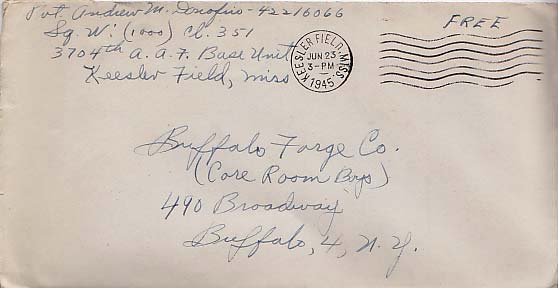 Pvt. Andrew M. Donofrio-42216066
Sq. W: (1000) Cl. 351
3704th A.A.F. Base Unit
Keesler Field, Miss
KEESLER FIELD, MISS.
JUN 23
3-PM
1945
FREE
Buffalo Forge Co.
(Core Room Boys)
490 Broadway
Buffalo, 4, N.Y.